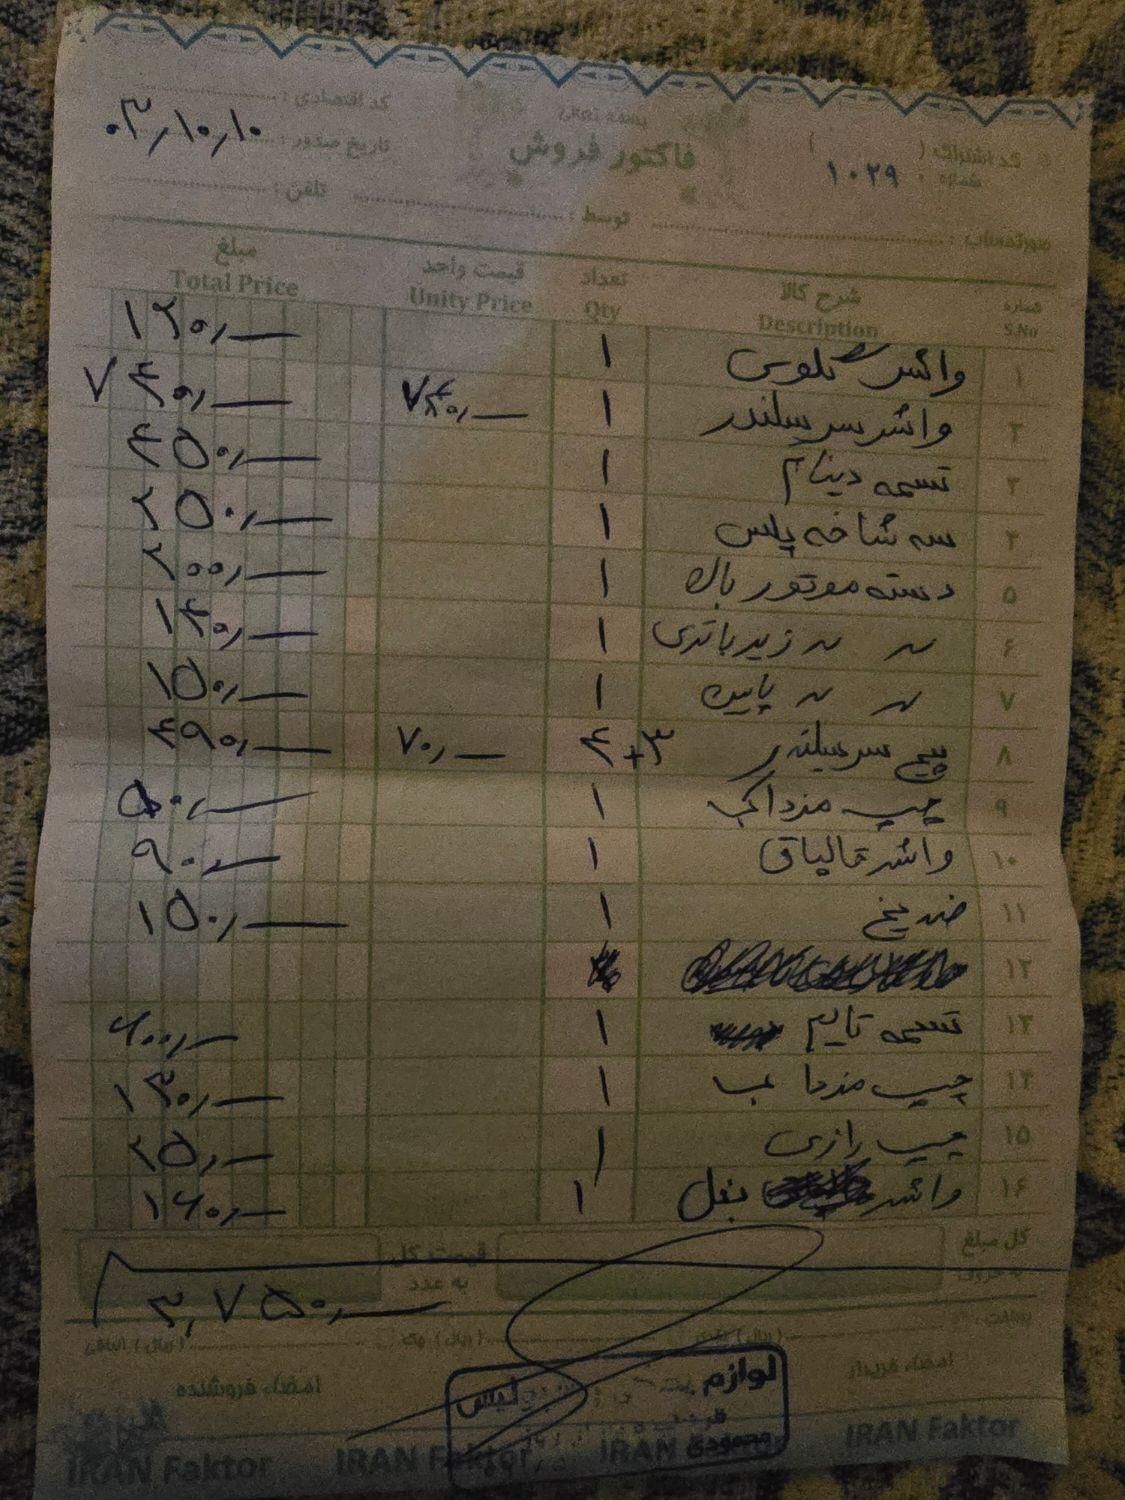 بسمه تعالی
کد اشتراک ( ) فاکتور فروش کد اقتصادی :
شماره : ۱۰۲۹ تاریخ صدور : ۰۳/۱۰/۱۰
صورتحساب : توسط : تلفن :
شماره شرح کالا تعداد قیمت واحد مبلغ
S.No Description Qty Unity Price Total Price
۱ واشر گلویی ۱ ۱۲۰/
۲ واشر سرسیلندر ۱ ۷۴۰/ ۷۴۰/
۳ تسمه دینام ۱ ۴۵۰/
۴ سه شاخه پلس ۱ ۲۵۰/
۵ دسته موتور بالا ۱ ۲۰۰/
۶ 〃 〃 زیر باتری ۱ ۱۴۰/
۷ 〃 〃 پایین ۱ ۱۵۰/
۸ پیچ سرسیلندر ۴+۳ ۷۰/ ۴۹۰/
۹ چسب مزدا ۱ ۵۰/
۱۰ واشر قالپاق ۱ ۹۰/
۱۱ ضدیخ ۱ ۱۵۰/
۱۲
۱۳ تسمه تایم ۱ ۶۰۰/
۱۴ چسب مزدا ۱ ۱۳۰/
۱۵ چسب رازی ۱ ۲۵/
۱۶ واشر بغل ۱ ۱۶۰/
کل مبلغ به حروف قیمت کل به عدد
۳,۷۵۰/
امضاء خریدار امضاء فروشنده
لوازم
محمودی
IRAN Faktor IRAN Faktor IRAN Faktor IRAN Faktor